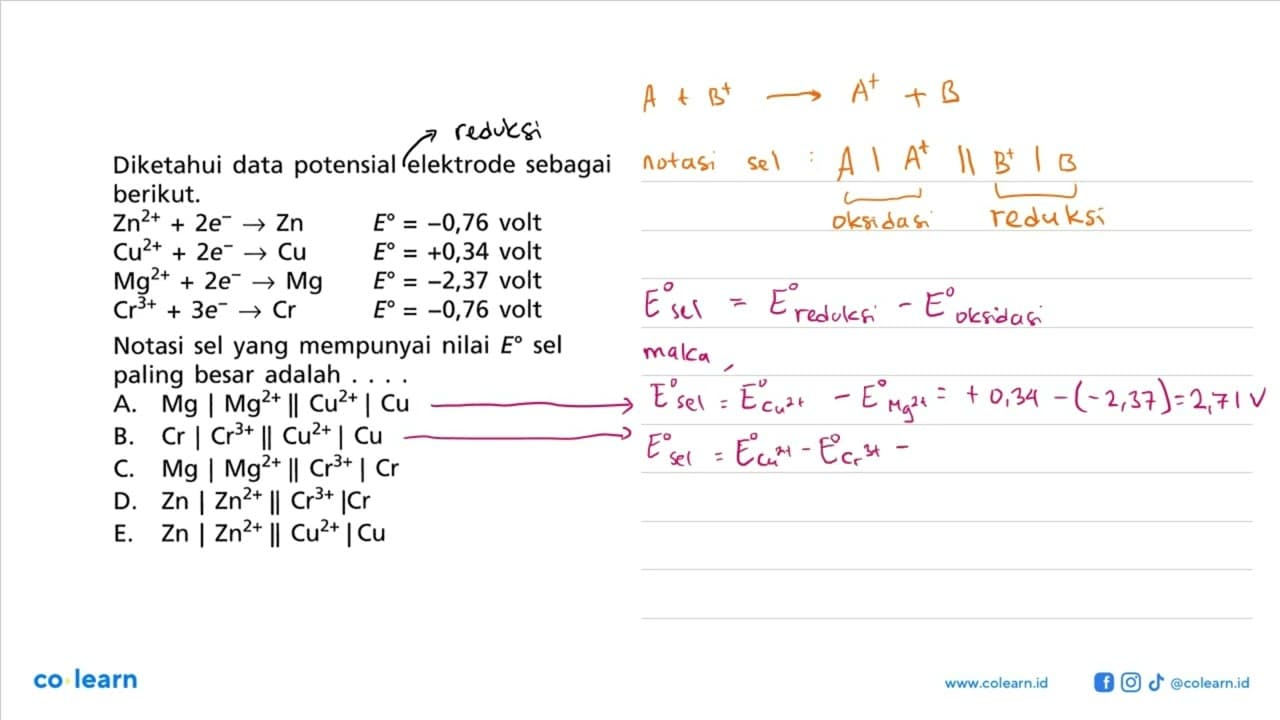 reduksi
Diketahui data potensial elektrode sebagai
berikut.
Zn²⁺ + 2e⁻ → Zn E° = −0,76 volt
Cu²⁺ + 2e⁻ → Cu E° = +0,34 volt
Mg²⁺ + 2e⁻ → Mg E° = −2,37 volt
Cr³⁺ + 3e⁻ → Cr E° = −0,76 volt
Notasi sel yang mempunyai nilai E° sel
paling besar adalah . . . .
A. Mg | Mg²⁺ || Cu²⁺ | Cu
B. Cr | Cr³⁺ || Cu²⁺ | Cu
C. Mg | Mg²⁺ || Cr³⁺ | Cr
D. Zn | Zn²⁺ || Cr³⁺ |Cr
E. Zn | Zn²⁺ || Cu²⁺ | Cu
A + B⁺ → A⁺ + B
notasi sel : A | A⁺ || B⁺ | B
oksidasi reduksi
E°sel = E°reduksi − E°oksidasi
maka,
E°sel = E°Cu²⁺ − E°Mg²⁺ = +0,34 − (−2,37) = 2,71 V
E°sel = E°Cu²⁺ − E°Cr³⁺ −
co learn
www.colearn.id @colearn.id